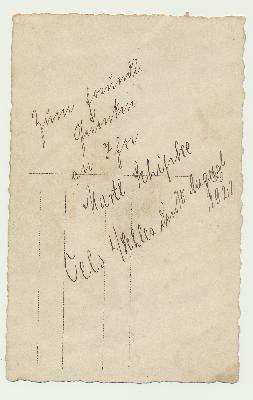 Zum freundl.
Gedenken
an Ihre
Martl Schipke
Oels i/Schles den 18. August
1921